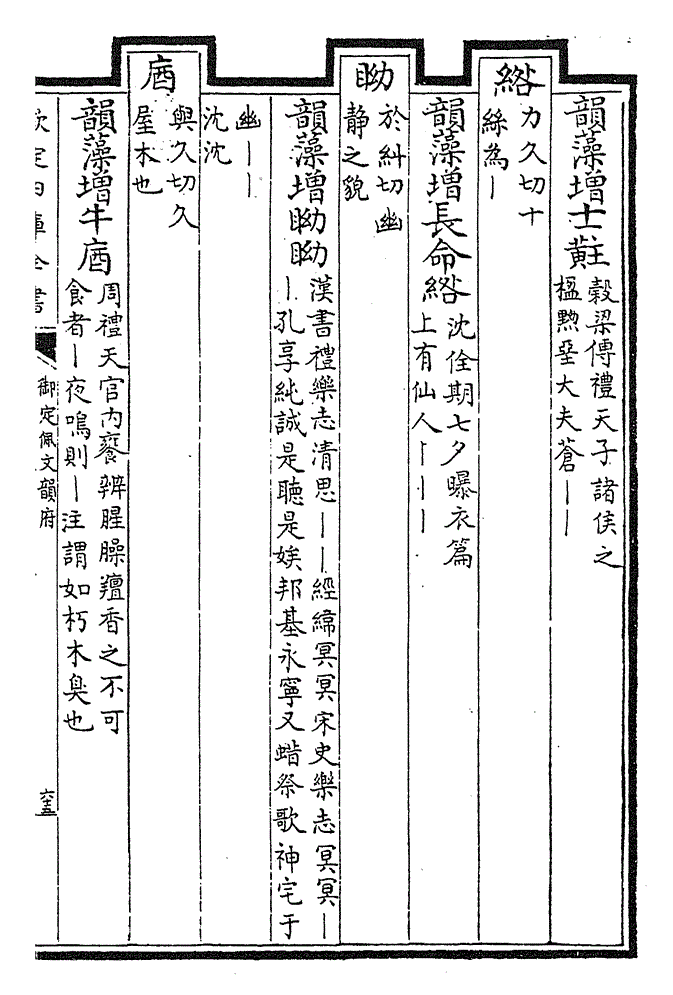 韻藻增士黈
穀梁傳禮天子諸侯之
楹黝堊大夫蒼丨丨
綹
力久切十
絲爲丨
韻藻增長命綹
沈佺期七夕曝衣篇
上有仙人丨丨丨
眑
於糾切幽
静之貌
韻藻增眑眑
漢書禮樂志清思丨丨經緯冥冥宋史樂志冥冥丨
丨孔享純誠是聽是娭邦基永寧又蜡祭歌神宅于
幽丨丨
沈沈
庮
與久切久
屋木也
韻藻增牛庮
周禮天官内饔辨腥臊羶香之不可
食者丨夜鳴則丨注謂如朽木臭也
欽定四庫全書
御定佩文韻府
六五